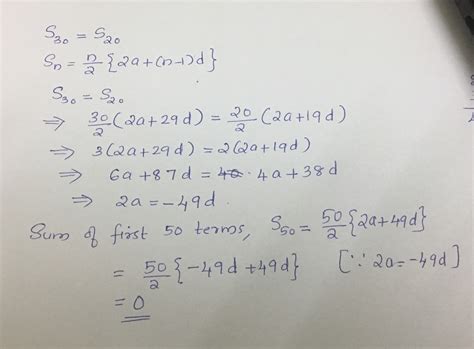 S₃₀ = S₂₀
Sₙ = n/2 {2a+(n-1)d}
S₃₀ = S₂₀
⇒ 30/2 (2a+29d) = 20/2 (2a+19d)
⇒ 3(2a+29d) = 2(2a+19d)
⇒ 6a+87d = 4a+38d
⇒ 2a = -49d.
Sum of first 50 terms, S₅₀ = 50/2 {2a+49d}
= 50/2 {-49d+49d} [∵ 2a=-49d]
= 0